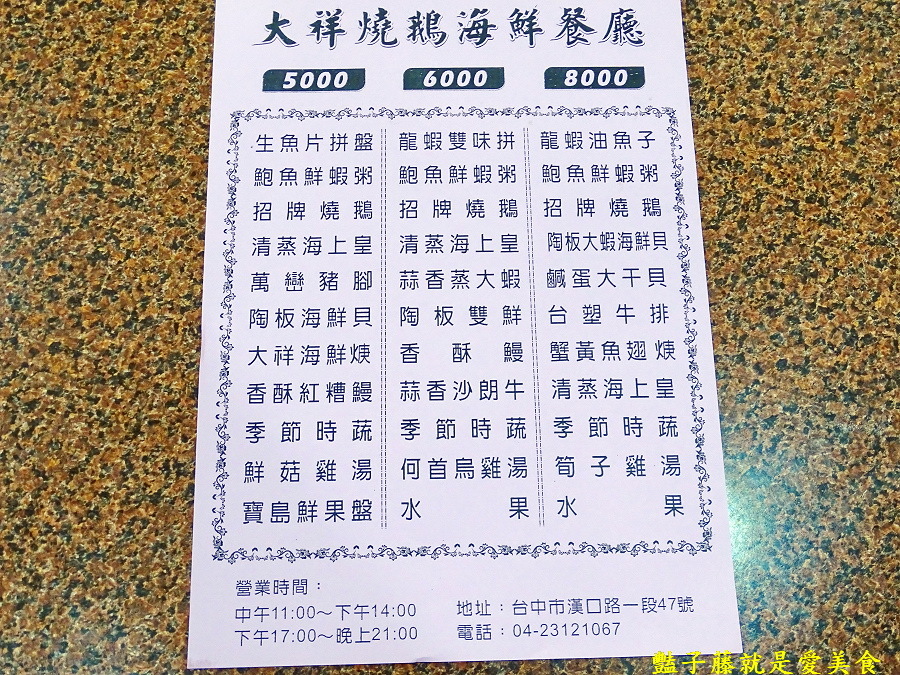 大祥燒鵝海鮮餐廳
5000
生魚片拼盤
鮑魚鮮蝦粥
招牌燒鵝
清蒸海上皇
萬巒豬腳
陶板海鮮貝
大祥海鮮焿
香酥紅糟鰻
季節時蔬
鮮菇雞湯
寶島鮮果盤
6000
龍蝦雙味拼
鮑魚鮮蝦粥
招牌燒鵝
清蒸海上皇
蒜香蒸大蝦
陶板雙鮮
香酥鰻
蒜香沙朗牛
季節時蔬
何首烏雞湯
水果
8000
龍蝦油魚子
鮑魚鮮蝦粥
招牌燒鵝
陶板大蝦海鮮貝
鹹蛋大干貝
台塑牛排
蟹黃魚翅焿
清蒸海上皇
季節時蔬
筍子雞湯
水果
營業時間：
中午11:00～下午14:00
下午17:00～晚上21:00
地址：台中市漢口路一段47號
電話：04-23121067
豔子藤就是愛美食